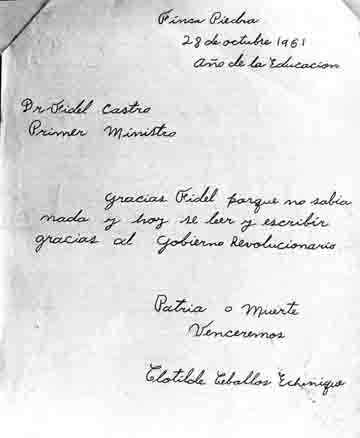 Finca Piedra
28 de octubre 1961
Año de la Educacion
Dr Fidel Castro
Primer Ministro
Gracias Fidel porque no sabia
nada y hoy se leer y escribir
gracias al Gobierno Revolucionario
Patria o Muerte
Venceremos
Clotilde Ceballos Echenique